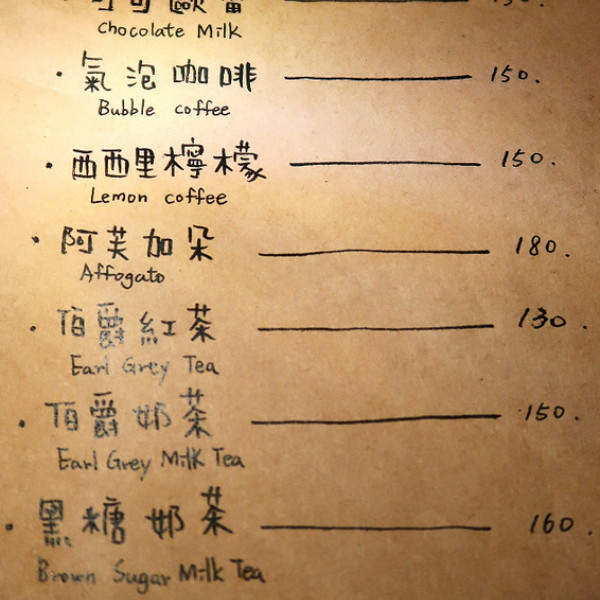 可可歐蕾 150.
Chocolate Milk
· 氣泡咖啡 150.
Bubble coffee
· 西西里檸檬 150.
Lemon coffee
· 阿芙加朵 180.
Affogato
· 伯爵紅茶 130.
Earl Grey Tea
· 伯爵奶茶 150.
Earl Grey Milk Tea
· 黑糖奶茶 160.
Brown Sugar Milk Tea